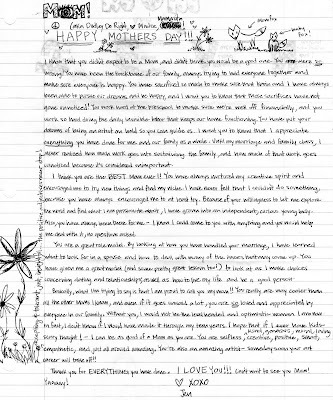 MOM!
HAPPY MOTHERS DAY!!!
I know that you didn't expect to be a Mom, and didn't think you would be a good one. You were so
wrong! You have been the backbone of our family, always trying to hold everyone together and
make sure everyone is happy. You have sacrificed so much to make sure that and I have always
been able to pursue our dreams and be happy, and I want you to know that those sacrifices have not
gone unnoticed! You work hard at the to make sure we're well off financially, and you
work so hard doing the daily labor that keeps our home functioning. You have put your
dreams of being an artist on hold so you can guide us. I want you to know that I appreciate
everything you have done for me and our family as a whole. Until my marriage and family class, I
never realized how much work goes into sustaining the family, and how much of that work goes
unnoticed because it's considered unimportant.
I think you are the BEST Mom ever!! You have always nurtured my creative spirit and
encouraged me to try new things and find my niche. I have never felt that I couldn't do something,
because you have always encouraged me to at least try. Because of your willingness to let me explore
the world and find what I am passionate about, I have grown into an independent, curious young lady.
Also, you have always been there for me - I know I could come to you with anything and you would help
me deal with it, no questions asked.
You are a great role model. By looking at how you have handled your marriage, I have learned
what to look for in a spouse and how to deal with many of the issues that may come up. You
have given me a great model (and some pretty great lessons too!) to look at as I make choices
concerning dating and relationships, as well as how to live my life and be a good person.
Basically, what I'm trying to say is that I am proud to call you my mom!! You really are way cooler than
all the other Moms I know, and even if it goes around a lot, you are so loved and appreciated by
everyone in our family. Without you, I would not be the level headed and optimistic woman I am now.
In fact, I don't know if I would have made it through my teen years. I hope that if I ever have kids-
scary thought! - I can be as good of a Mom as you are. You are selfless, creative, positive, smart,
kind, generous, moral, loving
empathetic, and just all around amazing. You're also an amazing artist - someday soon your art
career will take off!!
Thank you for EVERYTHING you have done. I LOVE YOU!!! Can't wait to see you Mom!
Yaaaay!
XOXO
Jen